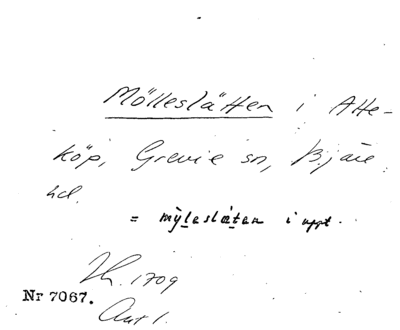 Mölleslätten i Atte-
köp, Grevie sn, Bjäre
hd.
= mỳleslạ̈ten i uppt.
Jh. 1709
Nr 7067.
Ant 1.